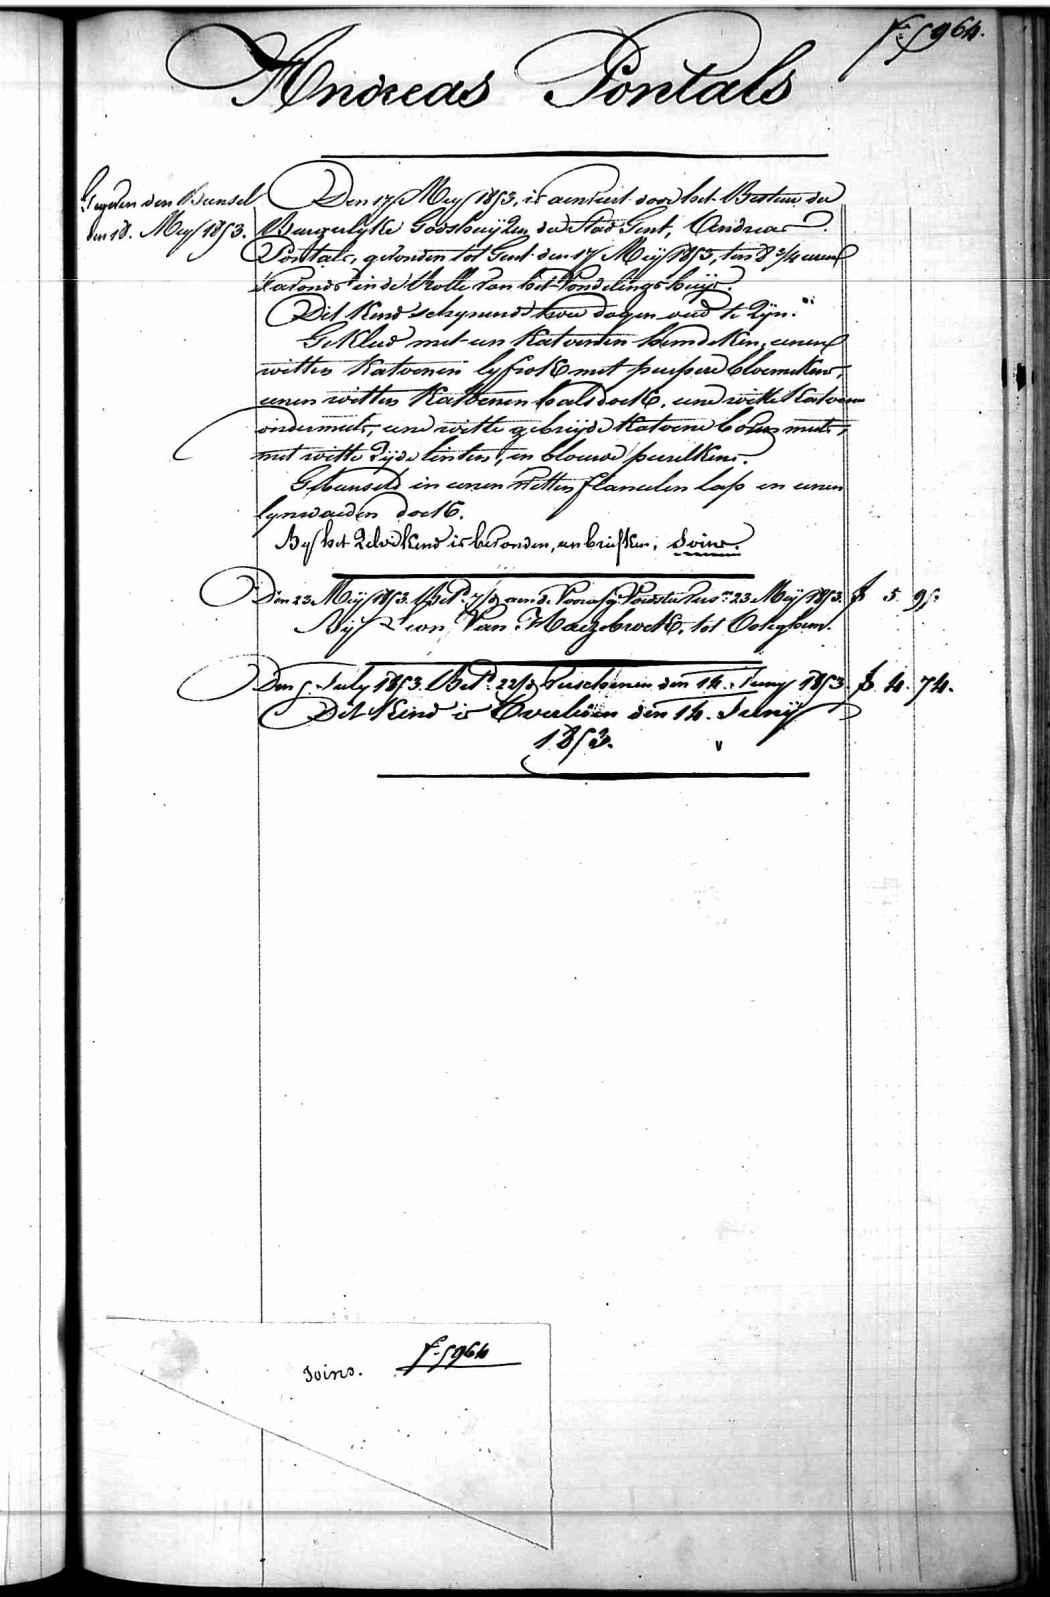 f: 5964.
Andreas Pontals
Gegeven den Bunsel
den 18. Meij 1853.
Den 17 Meij 1853. is aenveert door het Bestuer der
Burgerlijke Godshuijzen der Stad Gent, Andreas
Pontals, gevonden tot Gent den 17 Meij 1853, ten 8 3/4 uren
s'avonds in de Rolle van het Vondelingshuijs.
Dit Kind schijnende twee dagen oud te zijn.
Gekleed met een Katoenen hemdeken, eenen
witten Katoenen lyfrok met purpere bloemekens,
eenen witten Katoenen halsdoek, eene witte Katoene
ondermuts, eene witte gebreijde Katoene boven muts,
met witte zijde linten, en blouwe peerelkens.
Gebunseld in eenen witten flanelen lap en eenen
lynwaeden doek.
By het zelve Kind is bevonden, een briefken: soins.
Den 23 Meij 1853. Bet. 7/d aen de Voorsz. Voedster 23 Meij 1853. f 5 95.
Bij Leon Van Maezebroek, tot Ooteghem.
Den 5 July 1853. Bet. 22/d Verschenen den 14. Juny 1853. f. 4. 74.
Dit Kind is Overleden den 14. Junij
1853.
soins. f: 5964